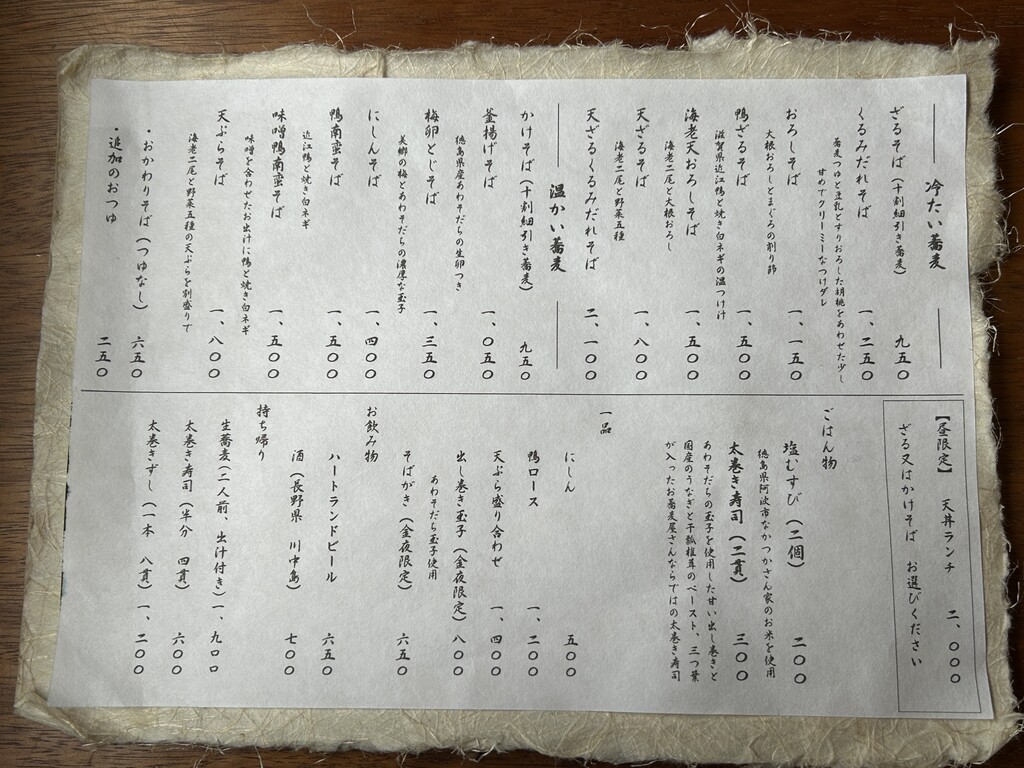 冷たい蕎麦
ざるそば（十割細引き蕎麦） 九五〇
くるみだれそば 一、二五〇
蕎麦つゆと豆乳とすりおろした胡桃をあわせた少し
甘めでクリーミーなつけダレ
おろしそば 一、一五〇
大根おろしとまぐろの削り節
鴨ざるそば 一、五〇〇
滋賀県近江鴨と焼き白ネギの温つけ汁
海老天おろしそば 一、五〇〇
海老二尾と大根おろし
天ざるそば 一、八〇〇
海老二尾と野菜五種
天ざるくるみだれそば 二、一〇〇
温かい蕎麦
かけそば（十割細引き蕎麦） 九五〇
釜揚げそば 一、〇五〇
徳島県産あわそだちの生卵つき
梅卵とじそば 一、三五〇
美郷の梅とあわそだちの濃厚な玉子
にしんそば 一、四〇〇
鴨南蛮そば 一、五〇〇
近江鴨と焼き白ネギ
味噌鴨南蛮そば 一、五〇〇
味噌を合わせたお出汁に鴨と焼き白ネギ
天ぷらそば 一、八〇〇
海老二尾と野菜五種の天ぷらを別盛りで
・おかわりそば（つゆなし） 六五〇
・追加のおつゆ 二五〇
【昼限定】 天丼ランチ 二、〇〇〇
ざる又はかけそば お選びください
ごはん物
塩むすび（二個） 二〇〇
徳島県阿波市なかつかさん家のお米を使用
太巻き寿司（二貫） 三〇〇
あわそだちの玉子を使用した甘い出し巻きと
国産のうなぎと干瓢椎茸のペースト、三つ葉
が入ったお蕎麦屋さんならではの太巻き寿司
一品
にしん 五〇〇
鴨ロース 一、二〇〇
天ぷら盛り合わせ 一、四〇〇
出し巻き玉子（金夜限定） 八〇〇
あわそだち玉子使用
そばがき（金夜限定） 六五〇
お飲み物
ハートランドビール 六五〇
酒（長野県 川中島） 七〇〇
持ち帰り
生蕎麦（二人前、出汁付き） 一、九〇〇
太巻き寿司（半分 四貫） 六〇〇
太巻きずし（一本 八貫） 一、二〇〇